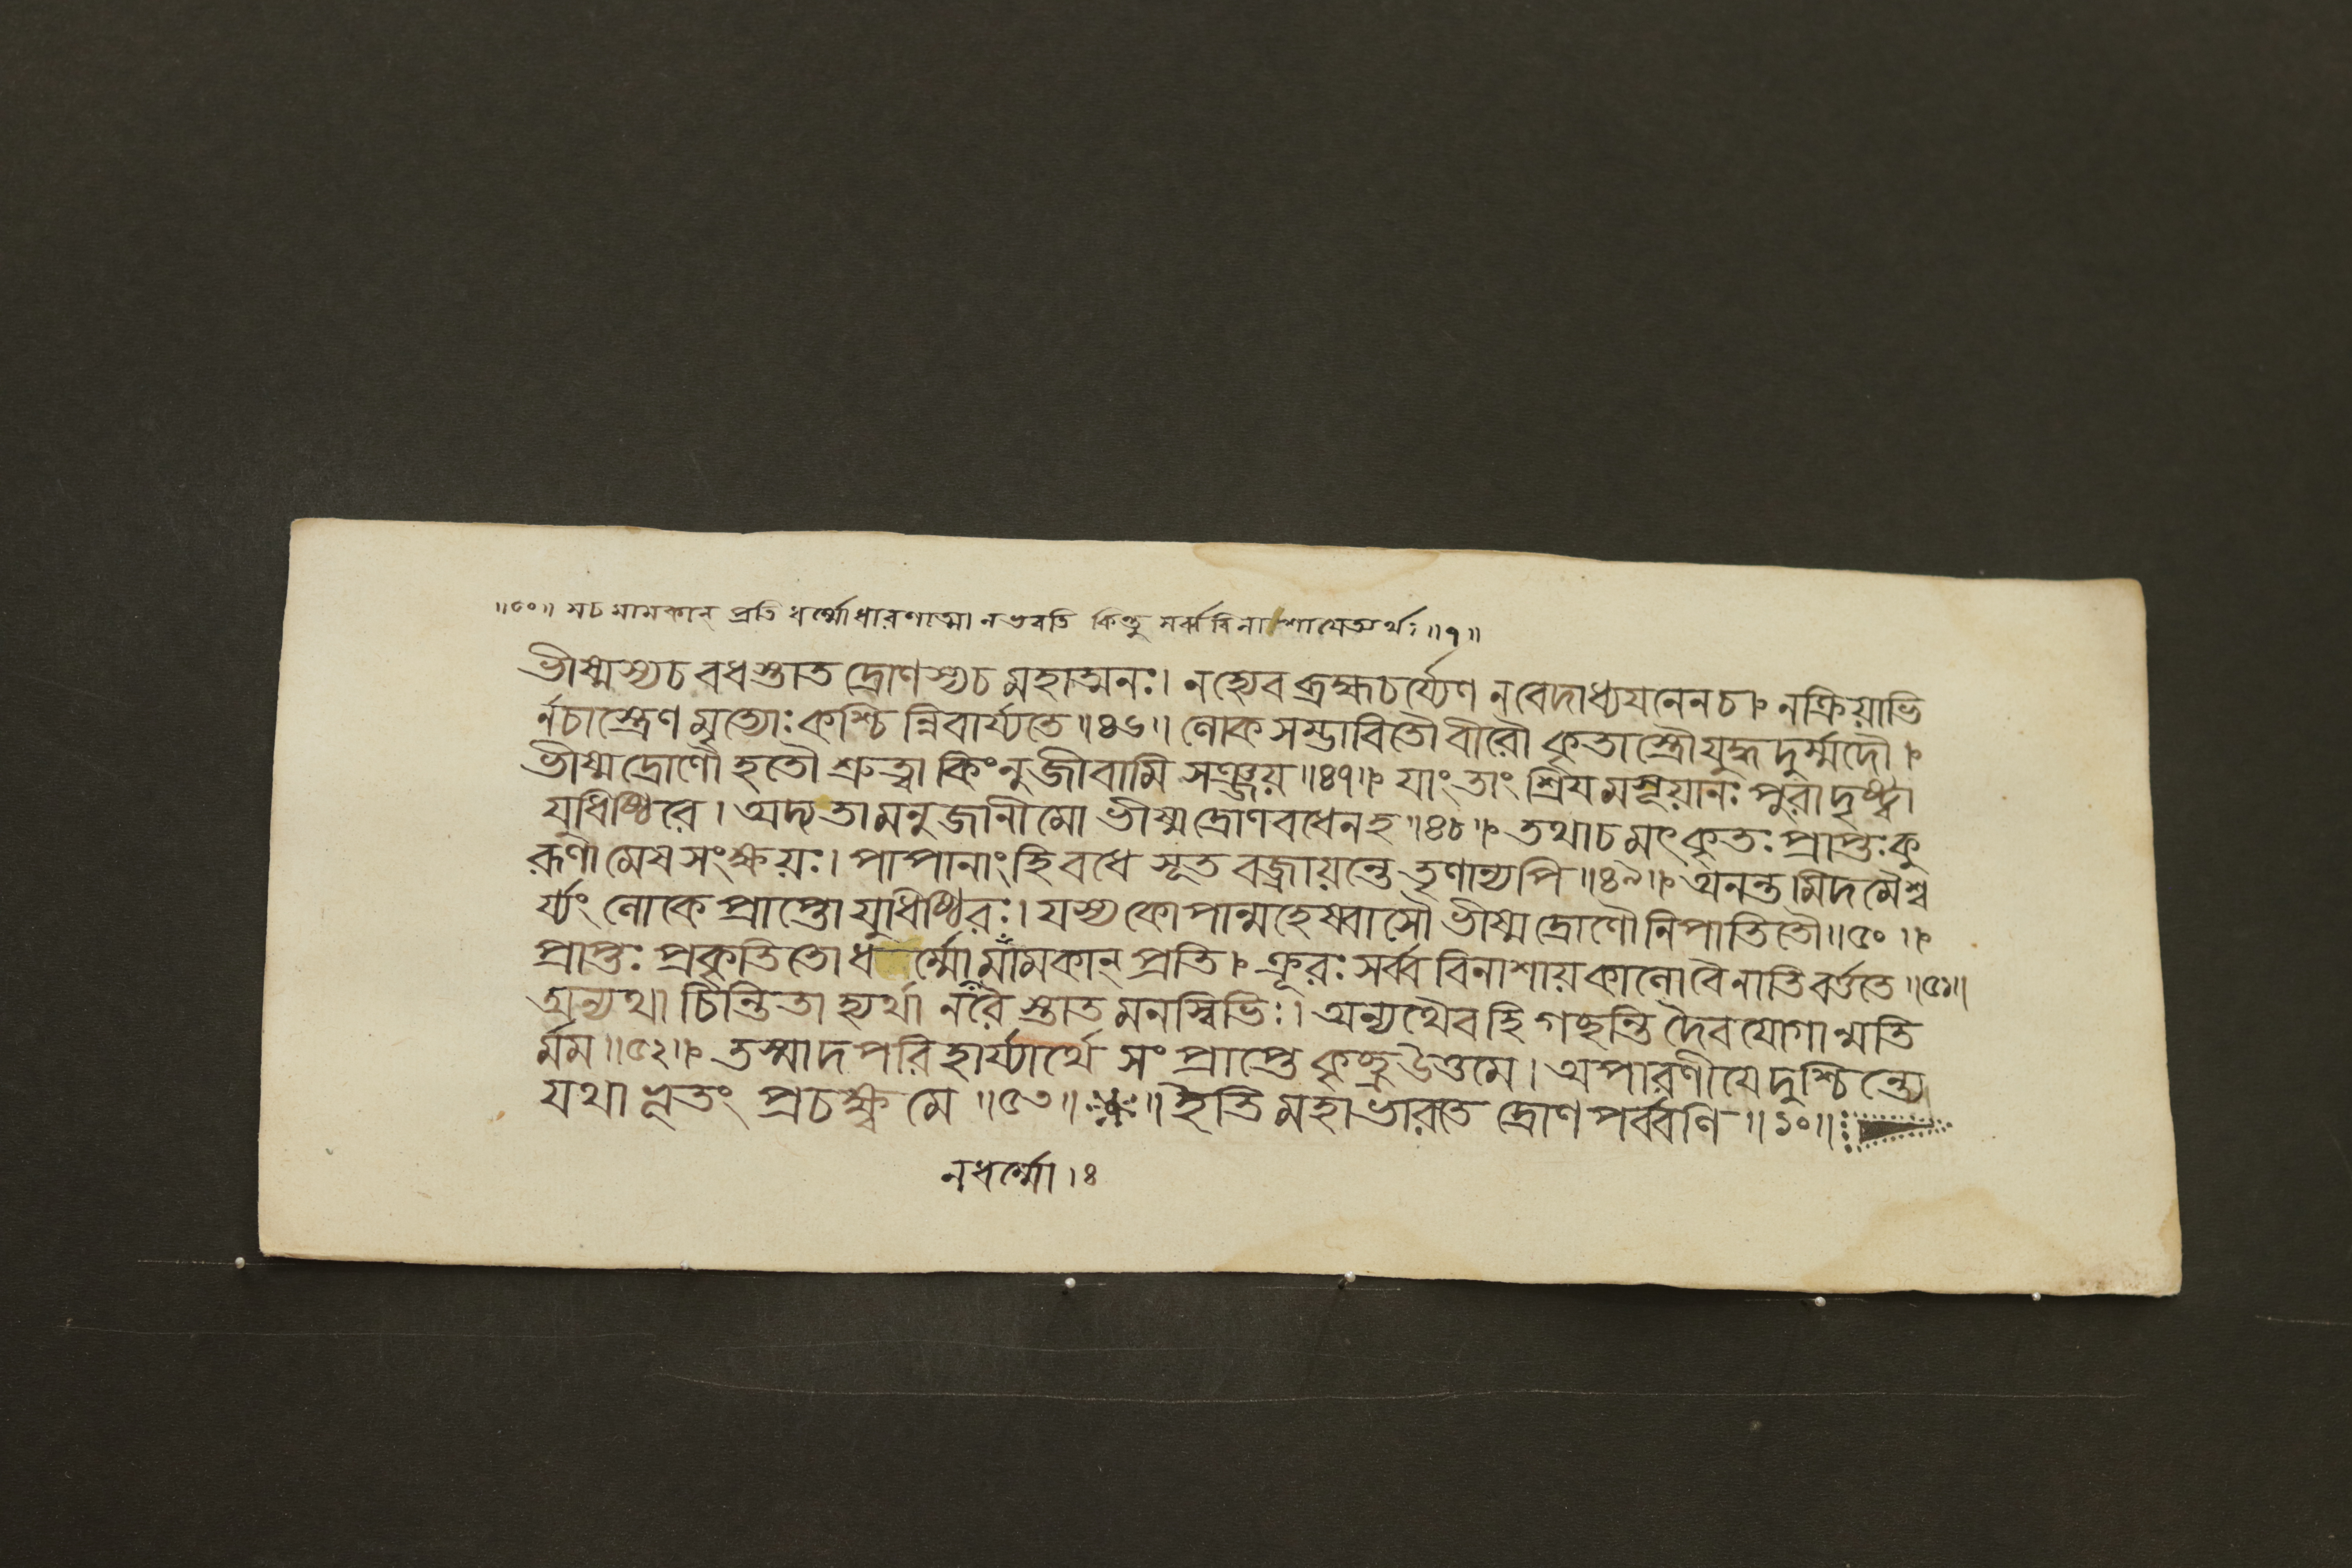 ॥৫০॥ সচ মামকান্ প্রতি ধর্ম্মোধারণাত্মা নভবতি কিন্তু সর্ব্ববিনাশায়েত্যর্থঃ॥৭॥
ভীষ্মস্যচ বধস্তাত দ্রোণস্যচ মহাত্মনঃ। নহ্যেব ব্রহ্মচর্য্যেণ নবেদাধ্যয়নেনচ। নক্রিয়াভি
র্নচাস্ত্রেণ মৃত্যোঃ কশ্চি ন্নিবার্য্যতে॥৪৬॥ লোক সম্ভাবিতৌ বীরৌ কৃতাস্ত্রৌ যুদ্ধ দুর্ম্মদৌ।
ভীষ্মদ্রোণৌ হতৌ শ্রুত্বা কিংনু জীবামি সঞ্জয়॥৪৭॥ যাং তাং শ্রিয় মসূয়ানঃ পুরা দৃষ্ট্বা
যুধিষ্ঠিরে। অদ্য তামনু জানীমো ভীষ্ম দ্রোণ বধেনহ॥৪৮॥ তথাচ মৎকৃতঃ প্রাপ্তঃ কু
রূণা মেষ সংক্ষয়ঃ। পাপানাং হি বধে সূত বজ্রায়ন্তে তৃণান্যপি॥৪৯॥ অনন্ত মিদমৈশ্ব
র্য্যং লোকে প্রাপ্তো যুধিষ্ঠিরঃ। যস্য কোপান্মহেষ্বাসৌ ভীষ্মদ্রোণৌ নিপাতিতৌ॥৫০॥
প্রাপ্তঃ প্রকৃতিতো ধর্ম্মো মামকান্ প্রতি। ক্রূরঃ সর্ব্ব বিনাশায় কালো বৈ নাতিবর্ত্ততে॥৫১॥
অন্যথা চিন্তিতা হ্যর্থা নরৈ স্তাত মনস্বিভিঃ। অন্যথৈব হি গচ্ছন্তি দৈব যোগান্মতি
র্মম॥৫২॥ তস্মাদ পরিহার্য্যার্থে সং প্রাপ্তে কৃচ্ছ্র উত্তমে। অপারণীয়ে দুশ্চিন্ত্যে
যথা ভূতং প্রচক্ষ্ব মে॥৫৩॥ ॥ইতি মহাভারতে দ্রোণ পর্ব্বণি॥১০॥
নধর্ম্মো।ঃ